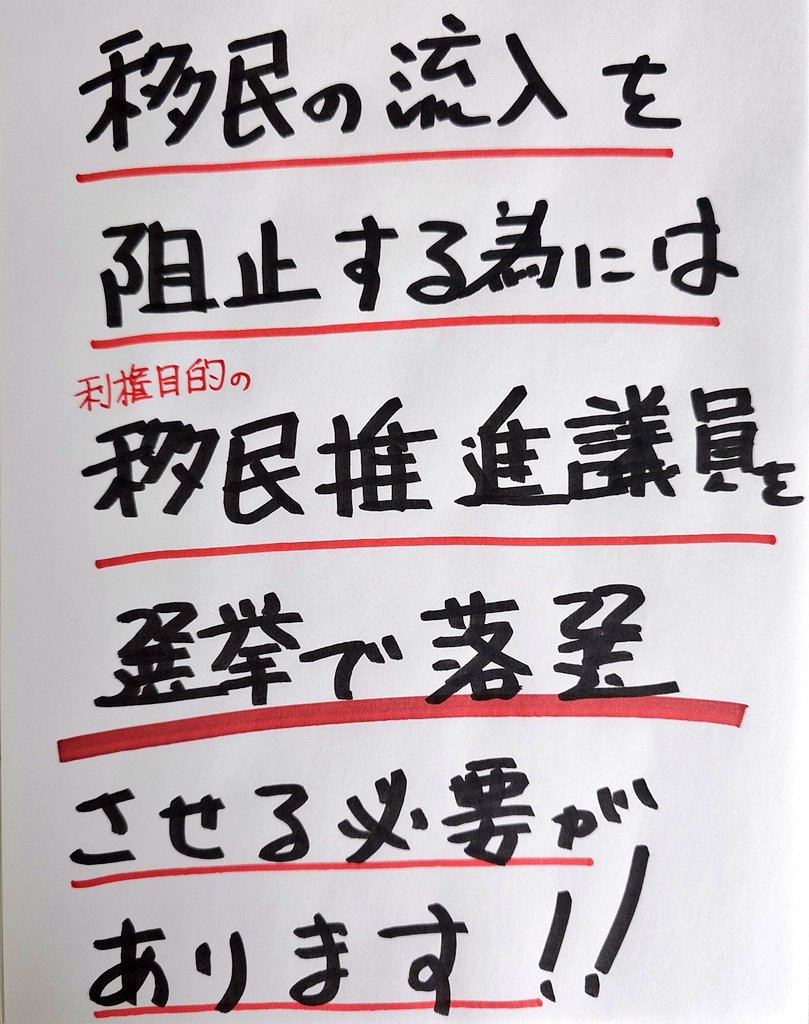 移民の流入を
阻止する為には
利権目的の
移民推進議員を
選挙で落選
させる必要が
あります!!